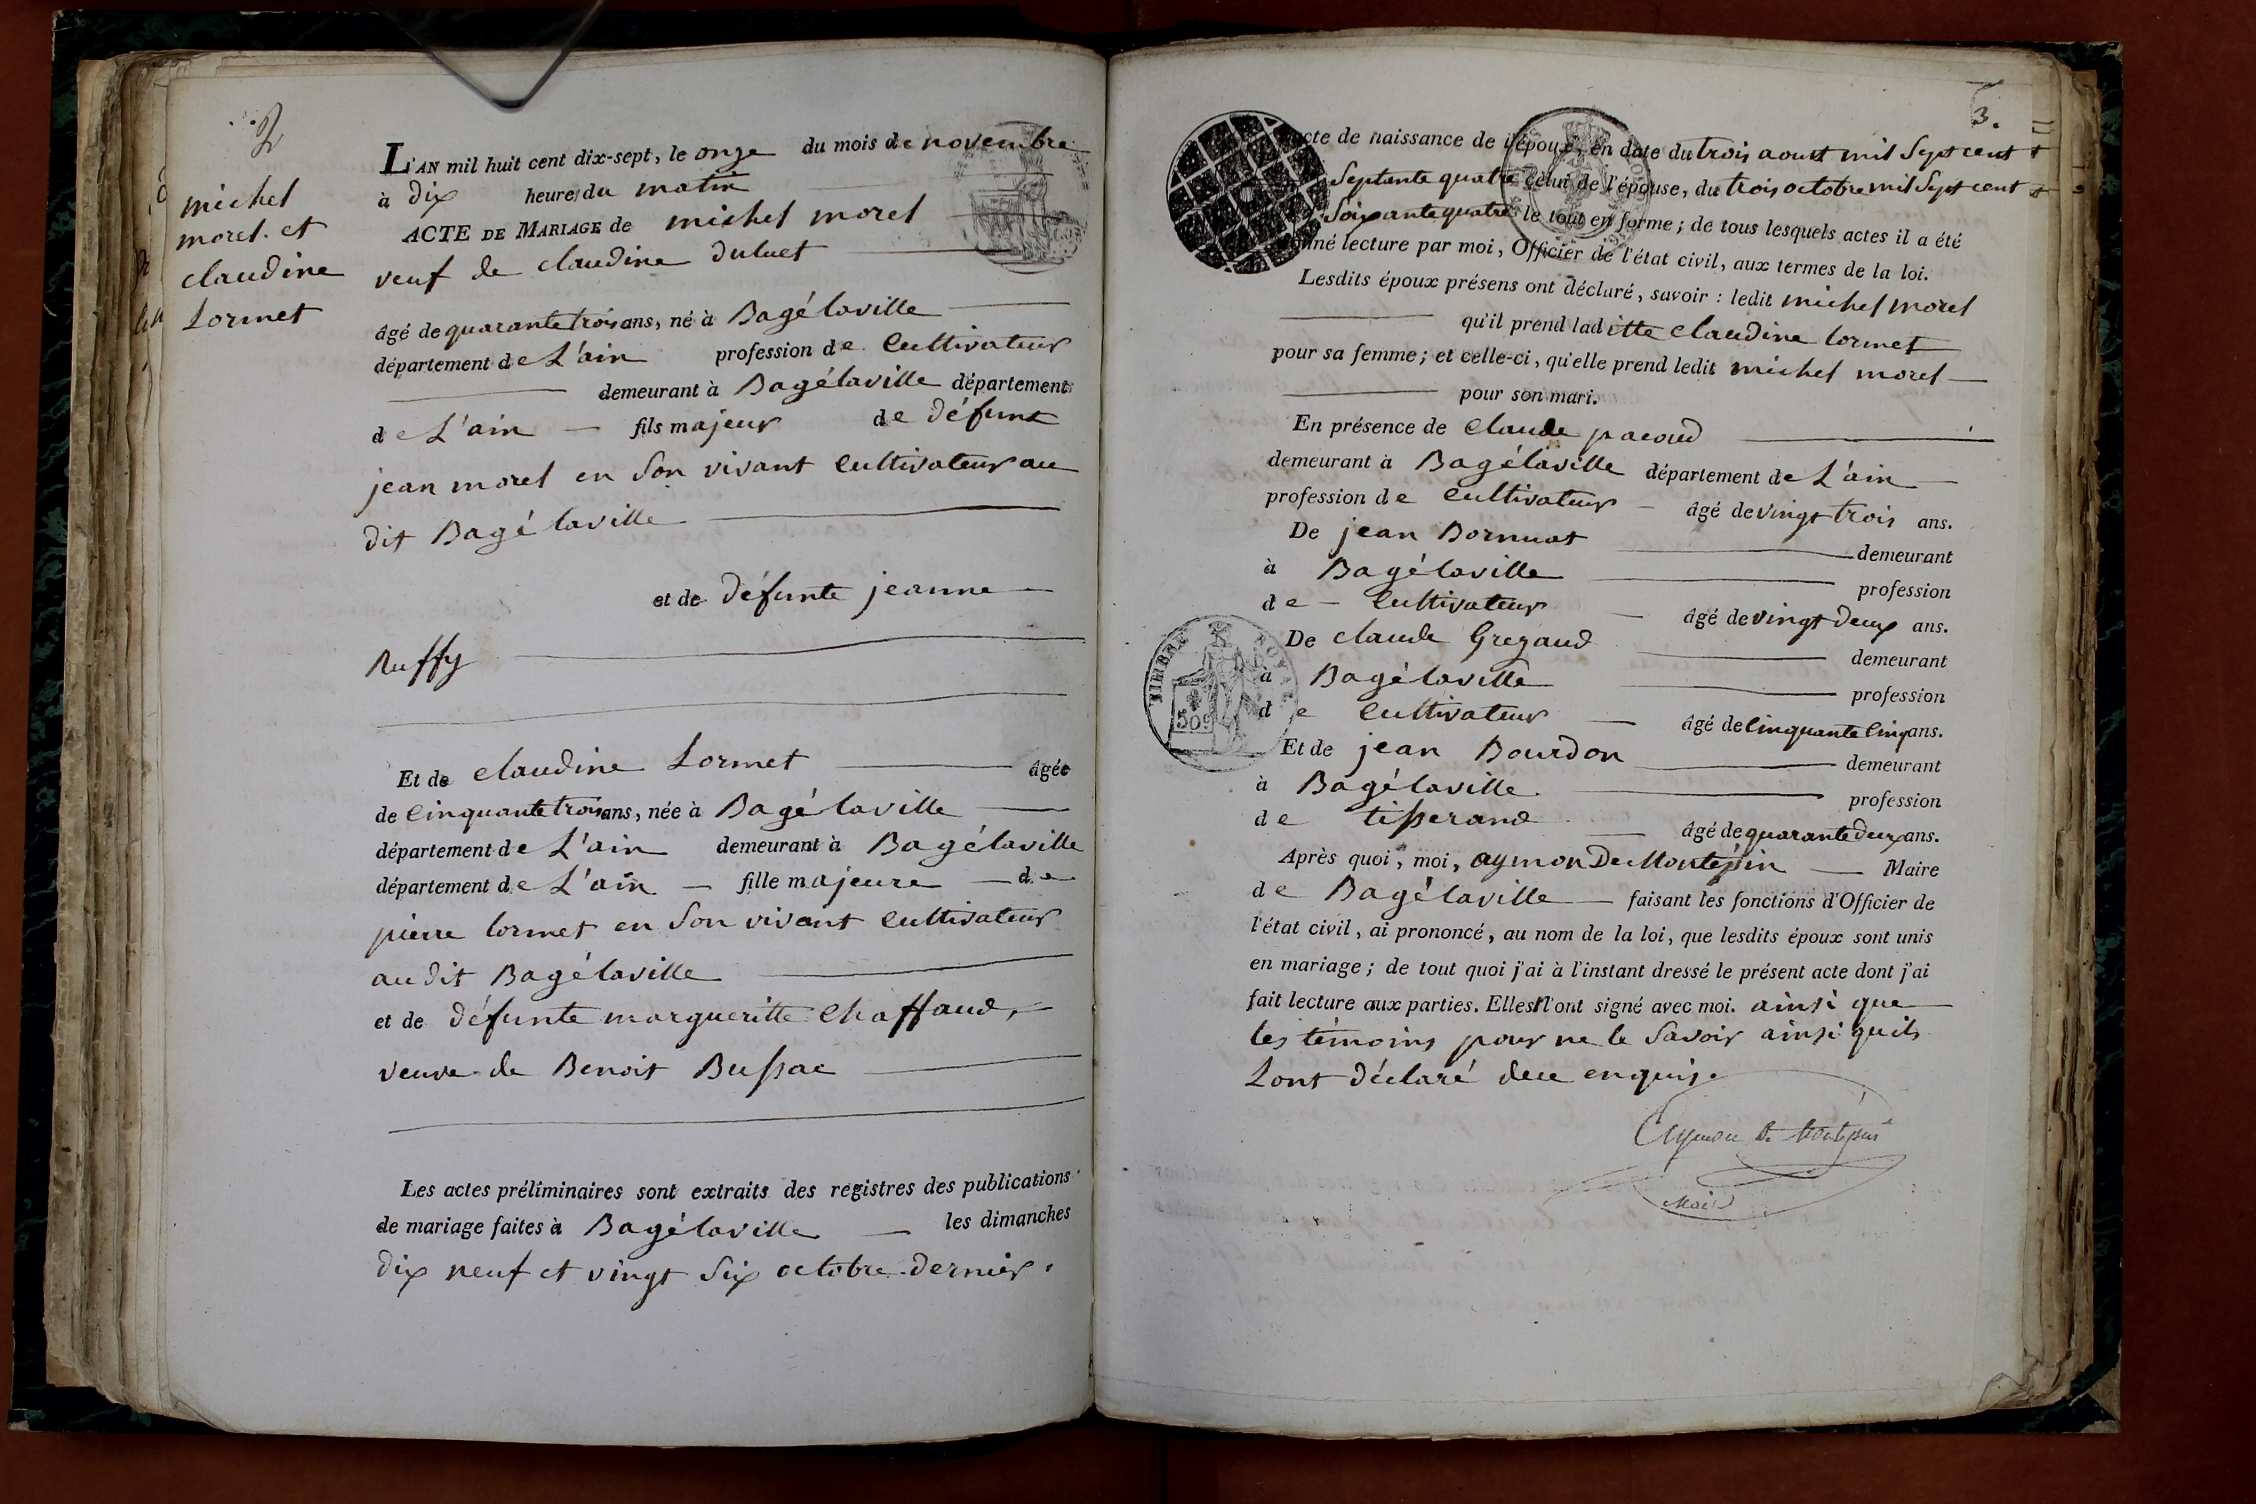 2
michel
morel. et
claudine
Lormet
L'AN mil huit cent dix-sept, le onze du mois de novembre
à dix heure du matin
ACTE DE MARIAGE de michel morel
veuf de claudine duluet
âgé de quarante trois ans, né à Bagélaville
département de L'ain profession de Cultivateur
demeurant à Bagélaville département
de L'ain fils majeur de défunt
jean morel en Son vivant Cultivateur au
dit Bagélaville
et de défunte jeanne
Ruffy
Et de claudine Lormet âgée
de Cinquante trois ans, née à Bagélaville
département de L'ain demeurant à Bagélaville
département de L'ain fille majeure de
pierre lormet en Son vivant Cultivateur
audit Bagélaville
et de défunte margueritte Chaffaud,
veuve de Benoit Bussac
Les actes préliminaires sont extraits des registres des publications
de mariage faites à Bagélaville les dimanches
dix neuf et vingt Six octobre dernier.
3.
acte de naissance de l'époux, en date du trois aoust mil Sept cent
Septante quatre celui de l'épouse, du trois octobre mil Sept cent
Soixante quatre le tout en forme; de tous lesquels actes il a été
donné lecture par moi, Officier de l'état civil, aux termes de la loi.
Lesdits époux présens ont déclaré, savoir: ledit michel morel
qu'il prend laditte Claudine lormet
pour sa femme; et celle-ci, qu'elle prend ledit michel morel
pour son mari.
En présence de Claude pacoud
demeurant à Bagélaville département de L'ain
profession de Cultivateur âgé de vingt trois ans.
De jean Bornuat demeurant
à Bagélaville profession
de Cultivateur âgé de vingt deux ans.
De claude Gregaud demeurant
à Bagélaville profession
de Cultivateur âgé de Cinquante Cinq ans.
Et de jean Bourdon demeurant
à Bagélaville profession
de tisserand âgé de quarante deux ans.
Après quoi, moi, aymon De Montépin Maire
de Bagélaville faisant les fonctions d'Officier de
l'état civil, ai prononcé, au nom de la loi, que lesdits époux sont unis
en mariage; de tout quoi j'ai à l'instant dressé le présent acte dont j'ai
fait lecture aux parties. Elles n'ont signé avec moi. ainsi que
les témoins pour ne le Savoir ainsi quils
Lont déclaré dece enquis.
Aymon De Montépin
Maire
TIMBRE ROYAL
50c